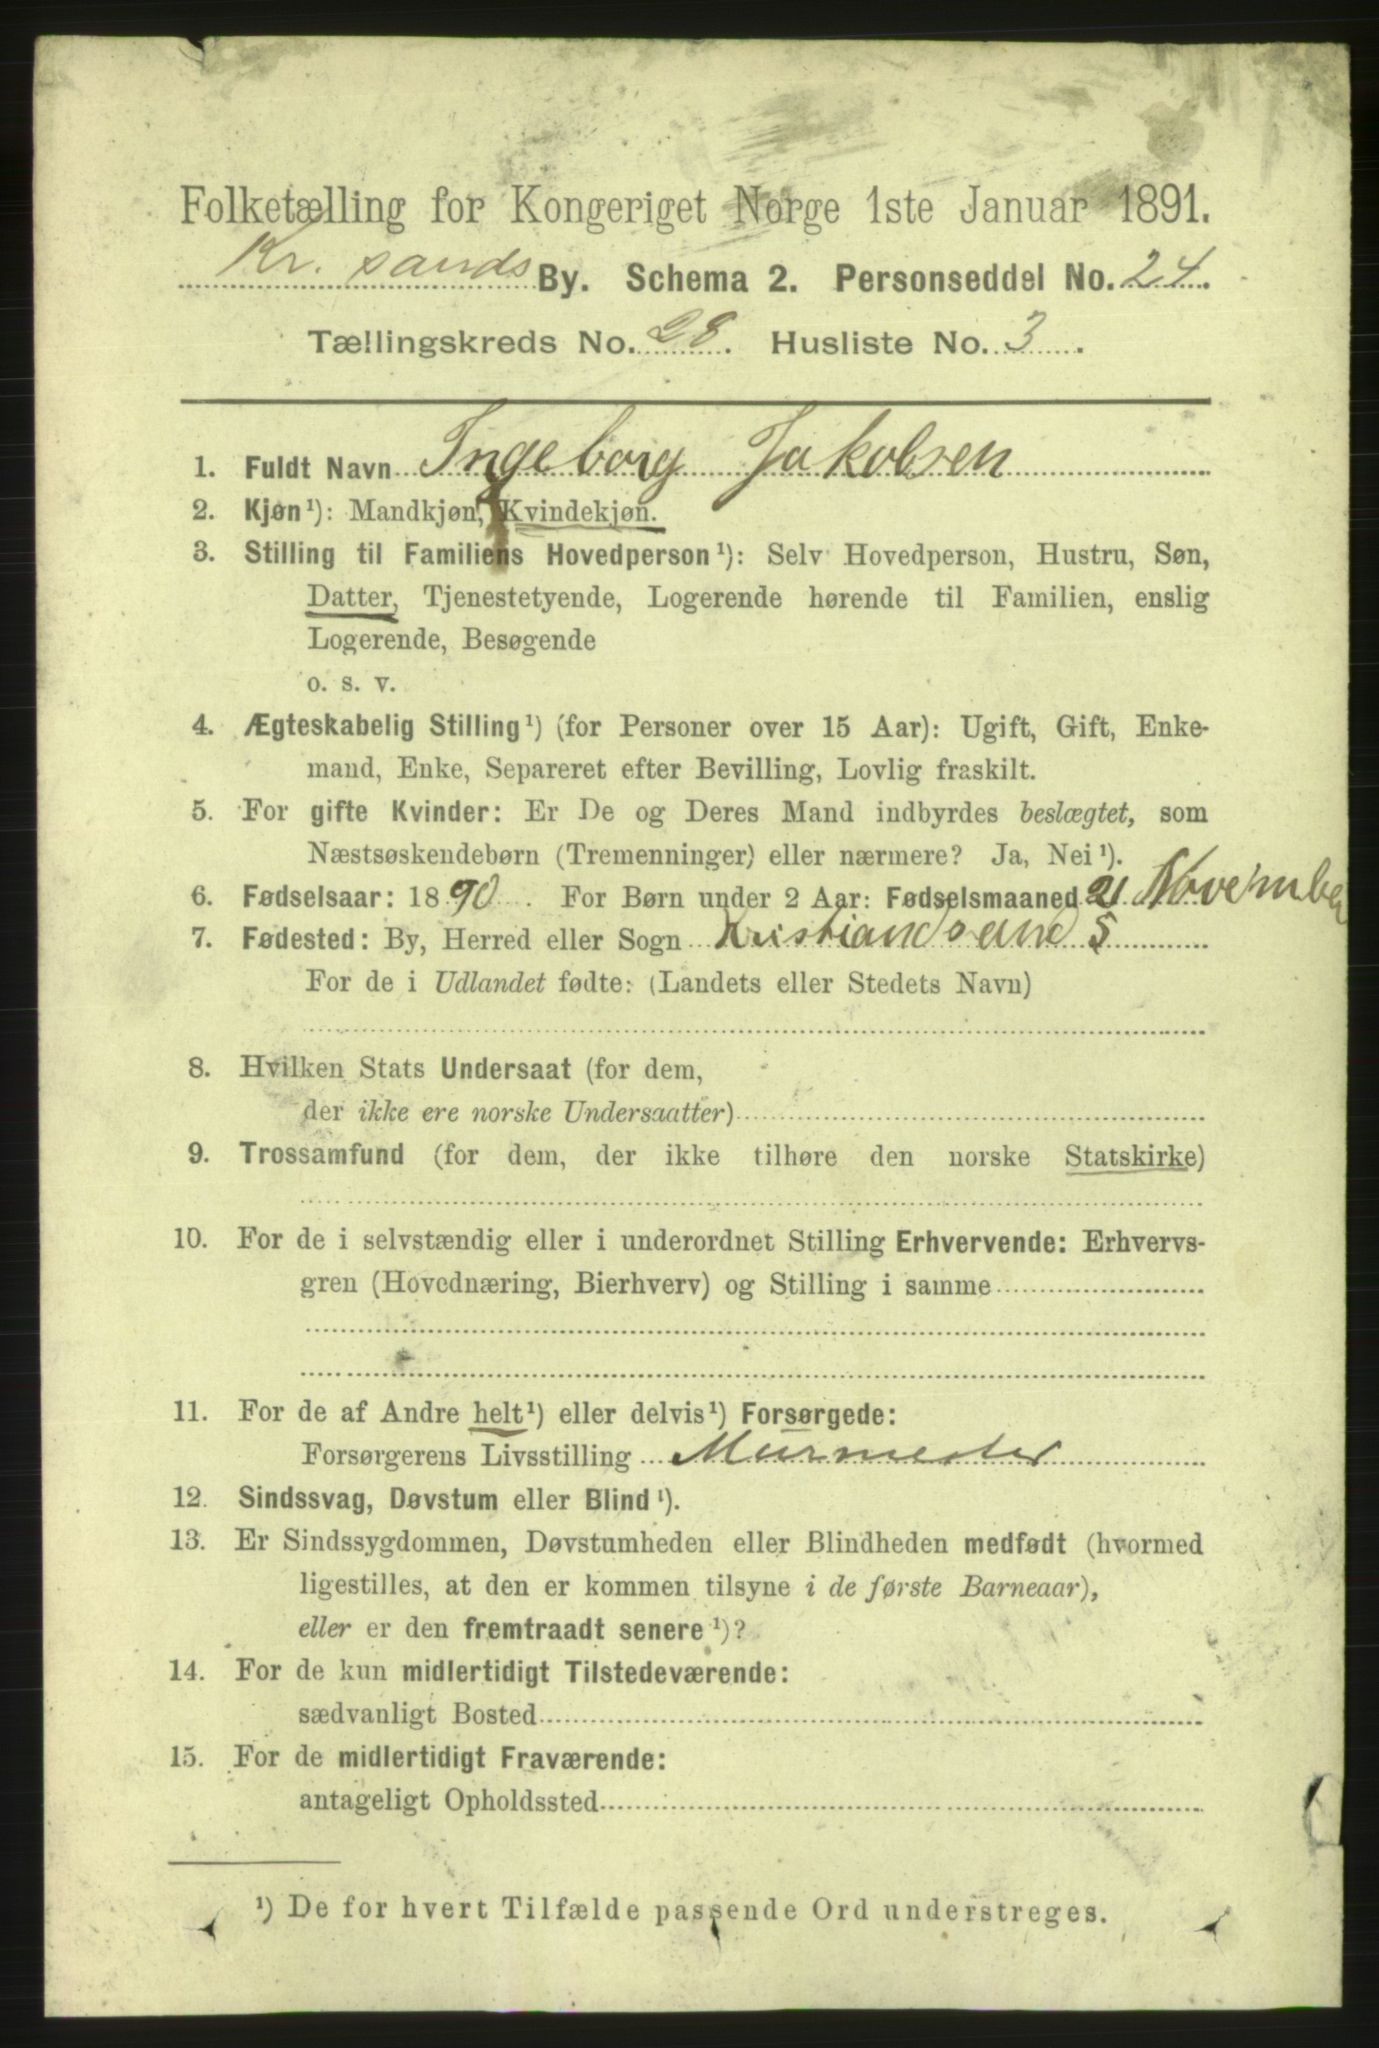 Folketælling for Kongeriget Norge 1ste Januar 1891.
Kr. sands By. Schema 2. Personseddel No. 24.
Tællingskreds No. 28. Husliste No. 3.
1. Fuldt Navn Ingeborg Jakobsen
2. Kjøn¹): Mandkjøn, Kvindekjøn.
3. Stilling til Familiens Hovedperson¹): Selv Hovedperson, Hustru, Søn,
Datter, Tjenestetyende, Logerende hørende til Familien, enslig
Logerende, Besøgende
o. s. v.
4. Ægteskabelig Stilling¹) (for Personer over 15 Aar): Ugift, Gift, Enke-
mand, Enke, Separeret efter Bevilling, Lovlig fraskilt.
5. For gifte Kvinder: Er De og Deres Mand indbyrdes beslægtet, som
Næstsøskendebørn (Tremenninger) eller nærmere? Ja, Nei¹).
6. Fødselsaar: 1890. For Børn under 2 Aar: Fødselsmaaned 21 November
7. Fødested: By, Herred eller Sogn Kristiandsand S
For de i Udlandet fødte: (Landets eller Stedets Navn)
8. Hvilken Stats Undersaat (for dem,
der ikke ere norske Undersaatter)
9. Trossamfund (for dem, der ikke tilhøre den norske Statskirke)
10. For de i selvstændig eller i underordnet Stilling Erhvervende: Erhvervs-
gren (Hovednæring, Bierhverv) og Stilling i samme
11. For de af Andre helt¹) eller delvis¹) Forsørgede:
Forsørgerens Livsstilling Murmester
12. Sindssvag, Døvstum eller Blind¹).
13. Er Sindssygdommen, Døvstumheden eller Blindheden medfødt (hvormed
ligestilles, at den er kommen tilsyne i de første Barneaar),
eller er den fremtraadt senere¹)?
14. For de kun midlertidigt Tilstedeværende:
sædvanligt Bosted
15. For de midlertidigt Fraværende:
antageligt Opholdssted
¹) De for hvert Tilfælde passende Ord understreges.